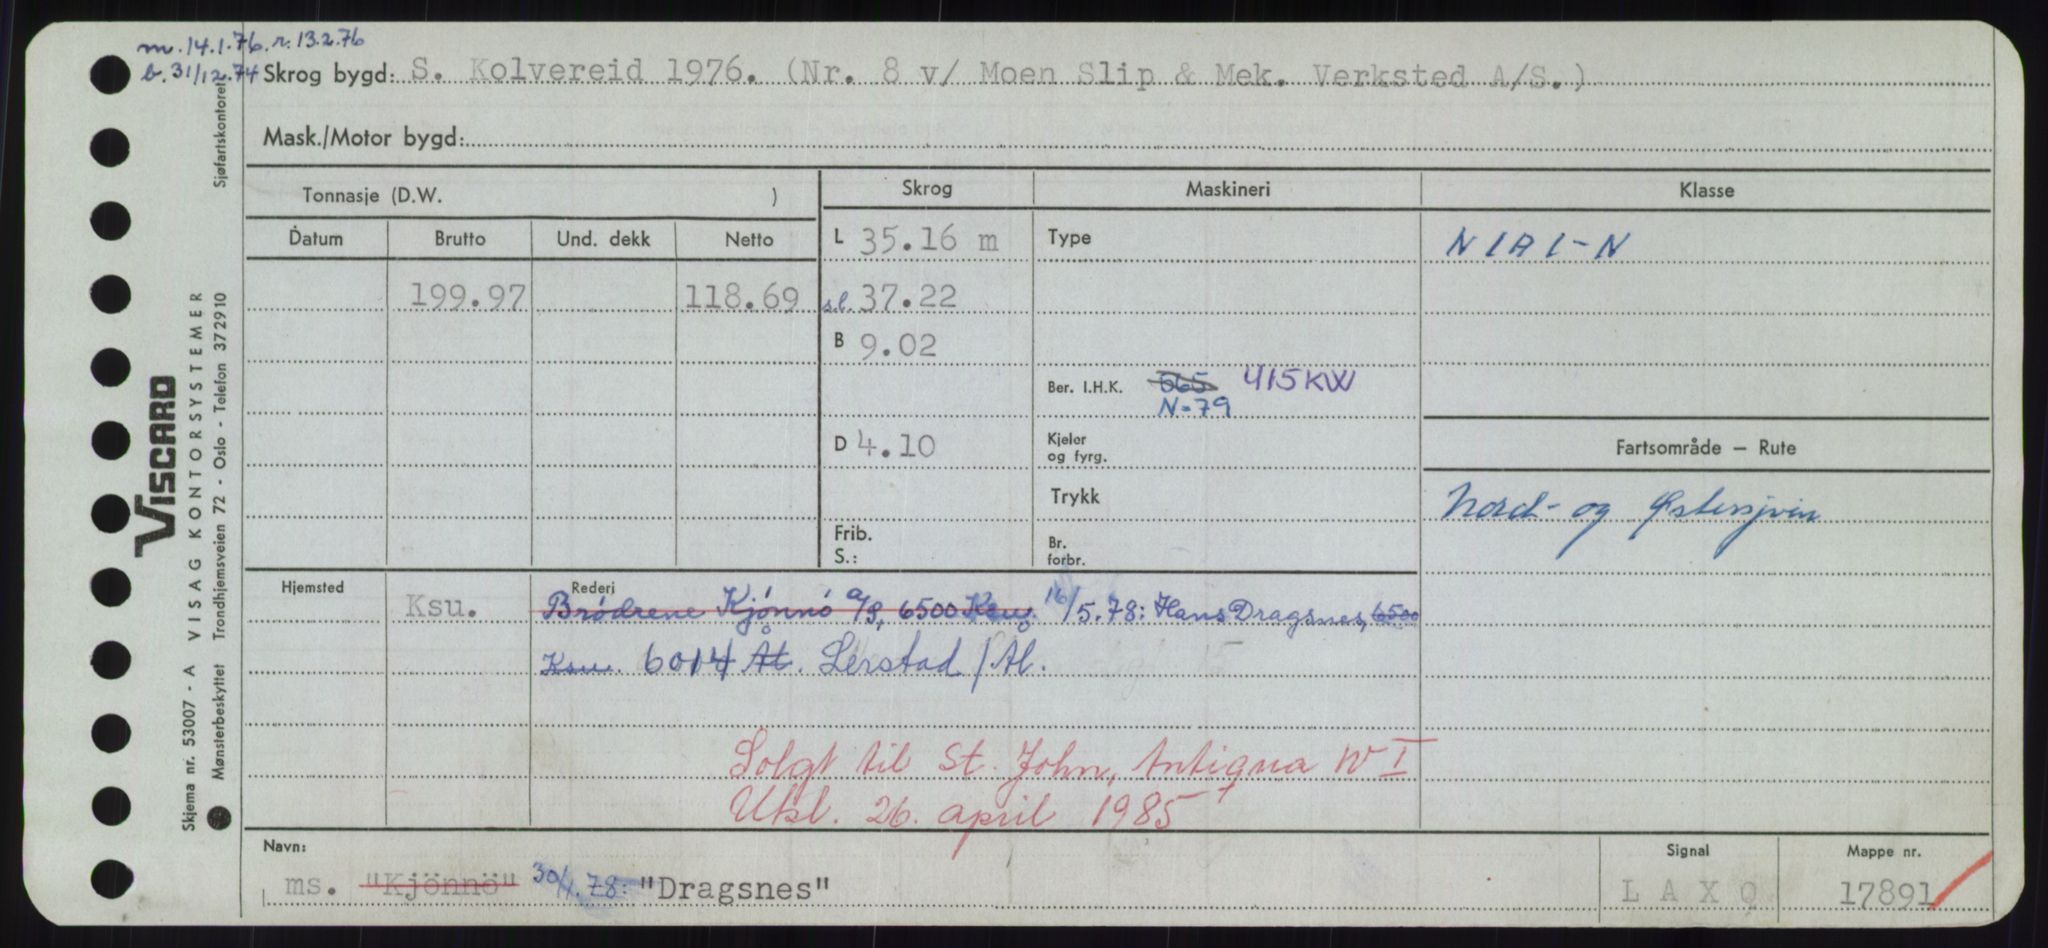 m. 14.1.76. r. 13.2.76
b. 31/12.74 Skrog bygd: S. Kolvereid 1976. (Nr. 8 v/ Moen Slip & Mek. Verksted A/S.)
Mask./Motor bygd:
Tonnasje (D.W. )
Datum Brutto Und. dekk Netto
199.97 118.69
Skrog
L 35.16 m
s.l. 37.22
B 9.02
D 4.10
Frib.
S.:
Maskineri
Type
Ber. I.H.K. 565 415KW
N-79
Kjeler
og fyrg.
Trykk
Br.
forbr.
Klasse
N 1A 1-N
Fartsområde — Rute
Nord- og Østersjøen
Hjemsted Ksu.
Rederi
Brödrene Kjönnö a/s, 6500 Ksu. 16/5.78: Hans Dragsnes, 6500
Ksu. 6014 Ål. Lerstad / Ål.
Solgt til St. John, Antigua W I
Utsl. 26. april 1985
Navn:
ms. "Kjönnö" 30/1.78: "Dragsnes"
Signal
L A X Q
Mappe nr.
17891
Sjøfartskontoret
VISCARD
VISAG KONTORSYSTEMER
Skjema nr. 53007 - A
Mønsterbeskyttet Trondhjemsveien 72 - Oslo - Telefon 372910